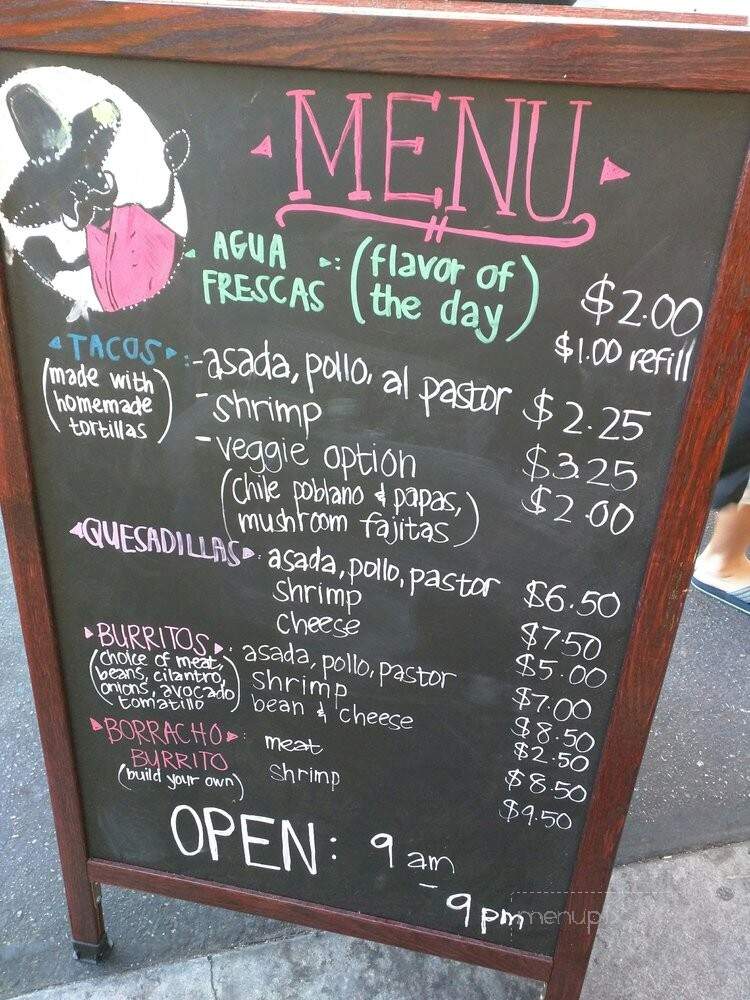 MENU
AGUA FRESCAS : (flavor of the day) $2.00
$1.00 refill
TACOS : -asada, pollo, al pastor $2.25
(made with homemade tortillas)
-shrimp $3.25
-veggie option $2.00
(chile poblano & papas,
mushroom fajitas)
QUESADILLAS : asada, pollo, pastor $6.50
shrimp $7.50
cheese $5.00
BURRITOS : asada, pollo, pastor $7.00
(choice of meat, beans, cilantro, onions, avocado tomatillo)
shrimp $8.50
bean & cheese $2.50
BORRACHO BURRITO : meat $8.50
(build your own)
shrimp $9.50
OPEN: 9 am
- 9 pm
menup